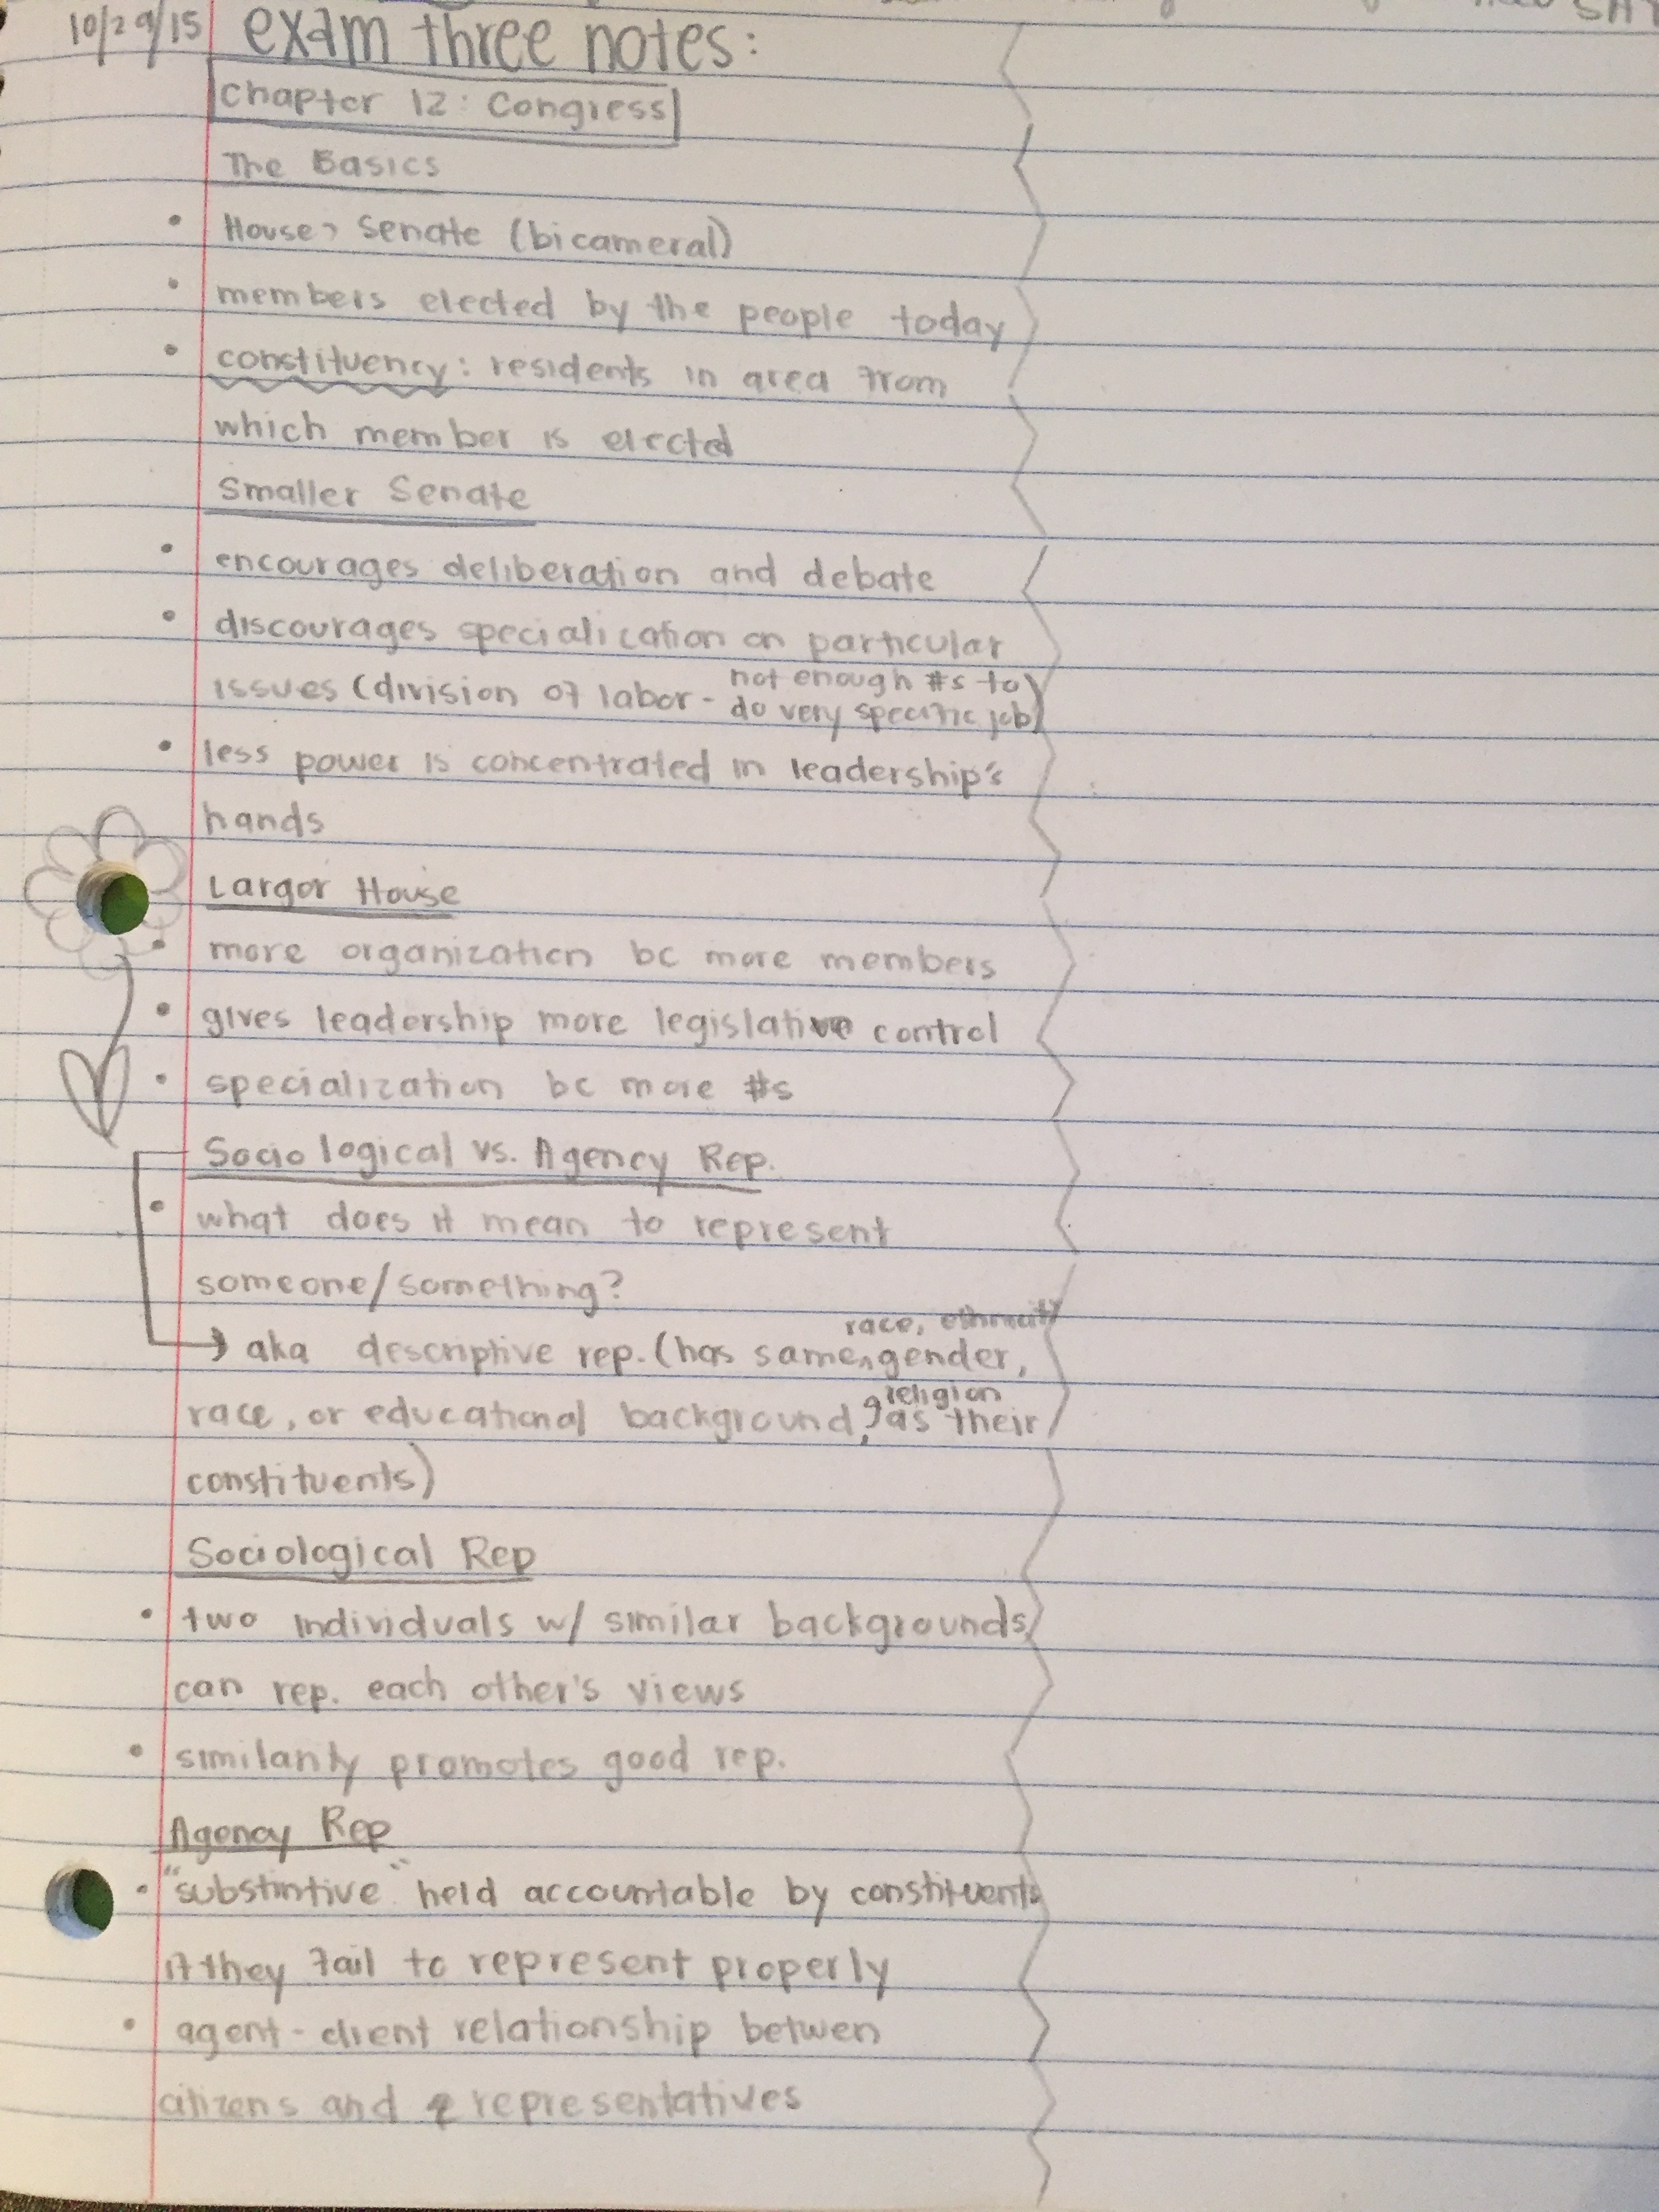 10/29/15 exam three notes:
Chapter 12: Congress
The Basics
• House, Senate (bicameral)
• members elected by the people today
• constituency: residents in area from
which member is elected
Smaller Senate
• encourages deliberation and debate
• discourages specialication on particular
issues (division of labor - not enough #s to
do very specific job)
• less power is concentrated in leadership's
hands
Larger House
• more organization bc more members
• gives leadership more legislative control
• specialization bc more #s
Sociological vs. Agency Rep.
• what does it mean to represent
someone/something?
race, ethnicity
→ aka descriptive rep. (has same^gender,
religion
race, or educational background, as their
constituents)
Sociological Rep
• two individuals w/ similar backgrounds
can rep. each other's views
• similarity promotes good rep.
Agency Rep
• "substintive" held accountable by constituents
if they fail to represent properly
• agent-client relationship betwen
citizens and representatives